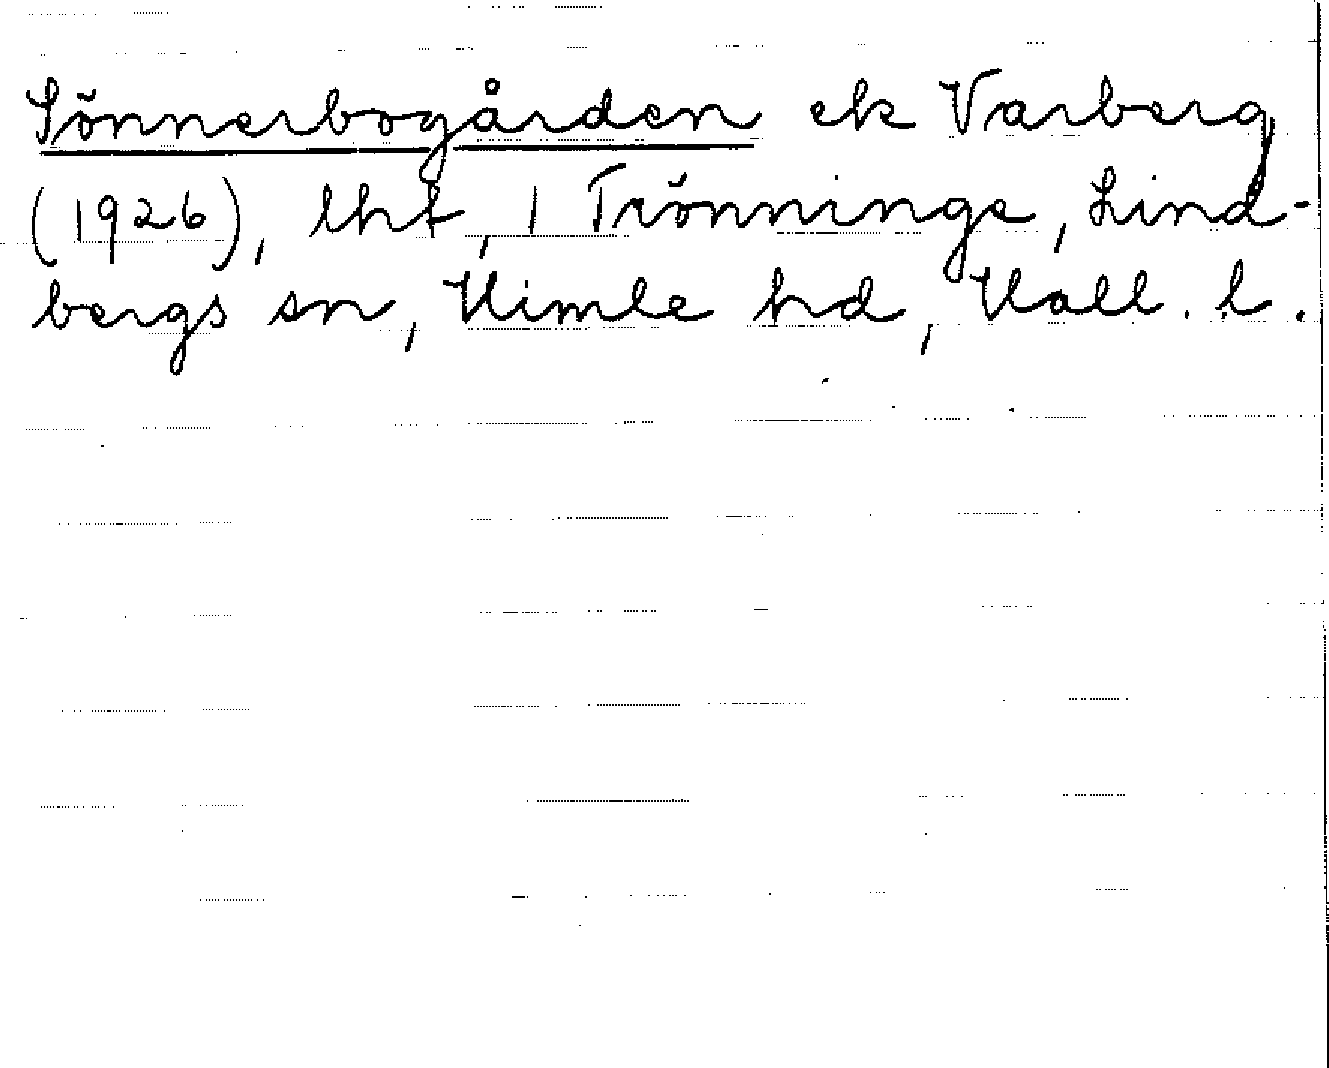 Sönnerbogården ek Varberg
(1926), lht, 1 Trönninge, Lind-
bergs sn, Himle hd, Hall. l.